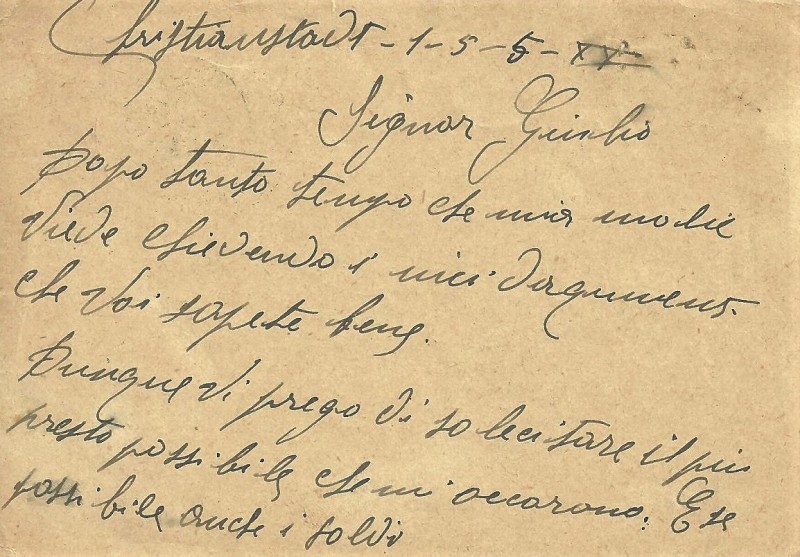 Cristianstadt - 1 - 5 - 5 - XX
Signor Giulio
Dopo tanto tempo che mia molie
viede chiedendo i miei dogument.
che Voi sapete bene.
Dunque vi prego di solecitare il piu
presto possibile che mi occorono: E se
possibile anche i soldi